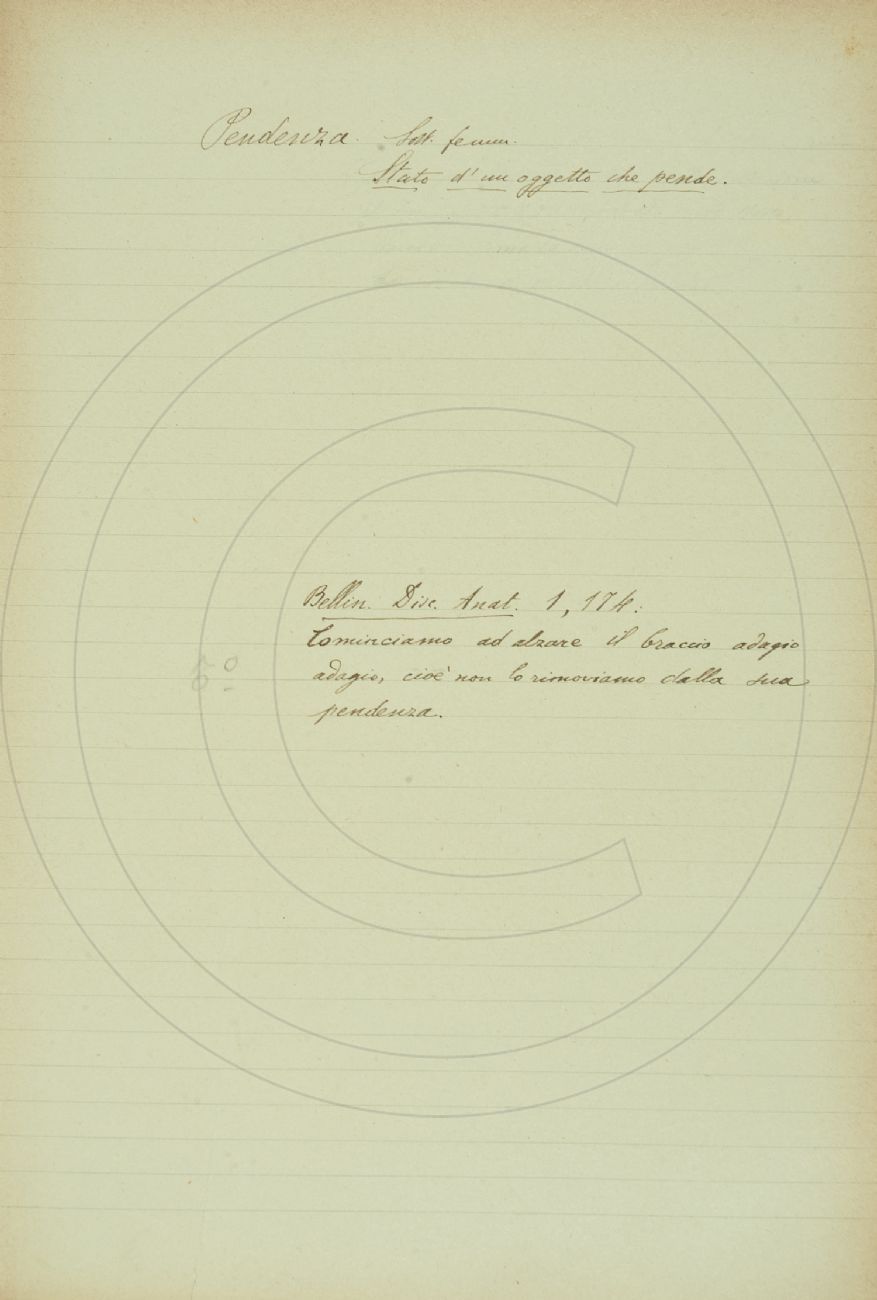 Pendenza. Sost. femm.
Stato d'un oggetto che pende.
Bellin. Disc. Anat. 1, 174:
Cominciamo ad alzare il braccio adagio
adagio, cioè non lo rimoviamo dalla sua
pendenza.